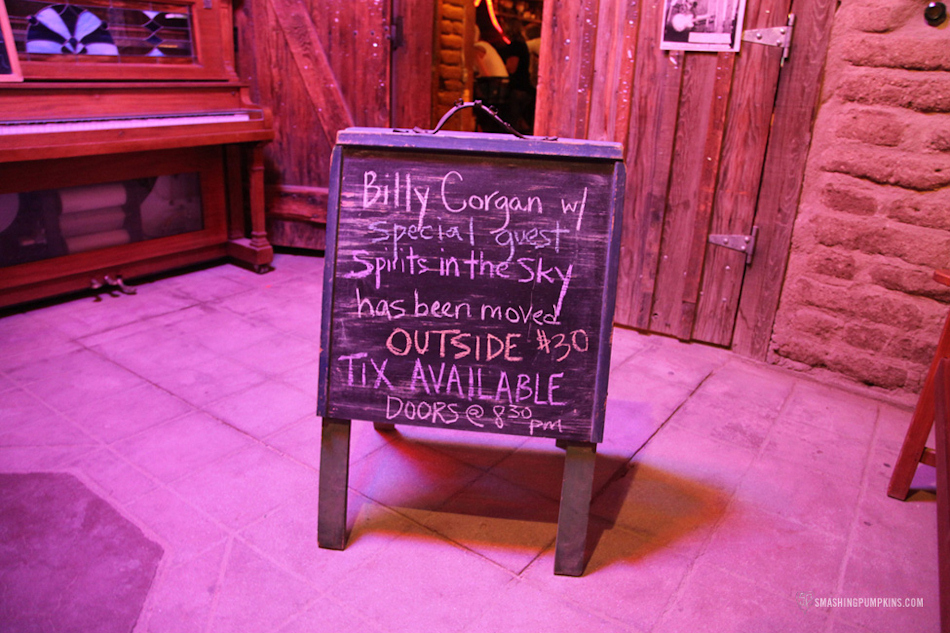 Billy Corgan w/
special guest
Spirits in the Sky
has been moved
OUTSIDE $30
TIX AVAILABLE
DOORS @ 8 30 pm
SMASHINGPUMPKINS.COM